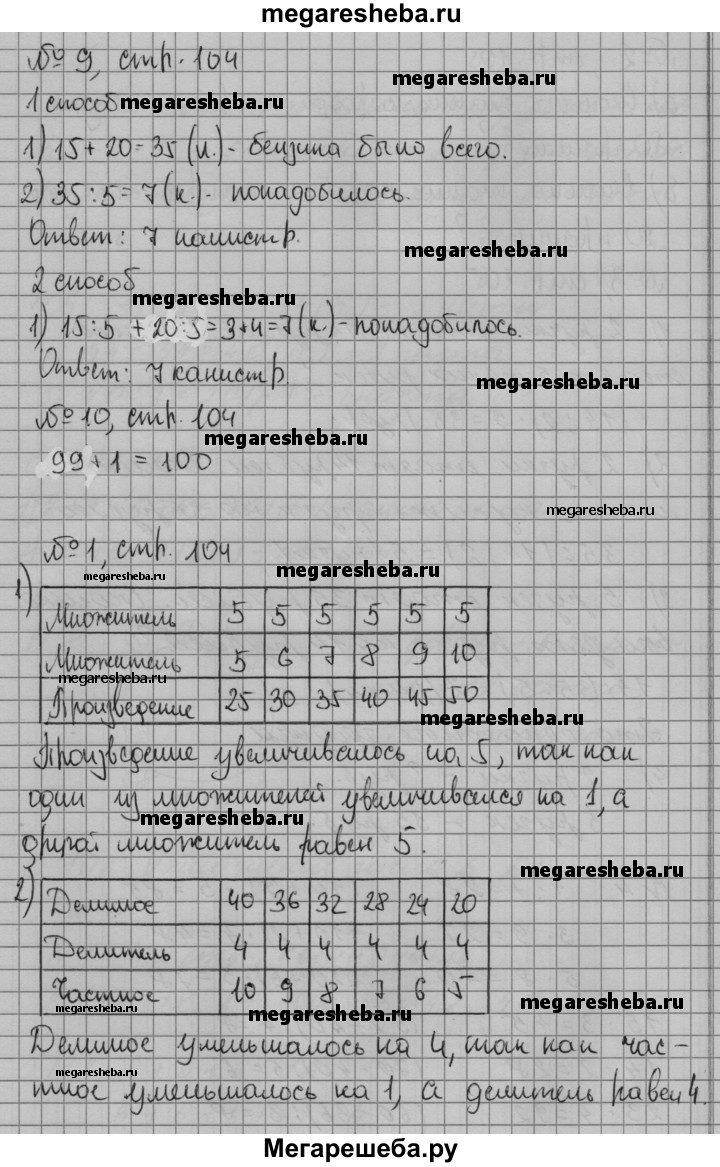 megaresheba.ru
№ 9, стр. 104
megaresheba.ru
1 способ megaresheba.ru
1) 15 + 20 = 35 (л.) - бензина было всего.
2) 35 : 5 = 7 (к.) - понадобилось.
Ответ: 7 канистр.
megaresheba.ru
2 способ
megaresheba.ru
1) 15 : 5 + 20 : 5 = 3 + 4 = 7 (к.) - понадобилось.
Ответ: 7 канистр.
megaresheba.ru
№ 10, стр. 104
megaresheba.ru
99 + 1 = 100
megaresheba.ru
№ 1, стр. 104
megaresheba.ru megaresheba.ru
1)
Множитель 5 5 5 5 5 5
Множитель 5 6 7 8 9 10
megaresheba.ru
Произведение 25 30 35 40 45 50
megaresheba.ru
Произведение увеличивалось на 5, так как
один из множителей увеличивался на 1, а
megaresheba.ru
другой множитель равен 5.
megaresheba.ru
2)
Делимое 40 36 32 28 24 20
Делитель 4 4 4 4 4 4
Частное 10 9 8 7 6 5
megaresheba.ru megaresheba.ru megaresheba.ru
Делимое уменьшалось на 4, так как час-
megaresheba.ru
тное уменьшалось на 1, а делитель равен 4.
Мегарешеба.ру